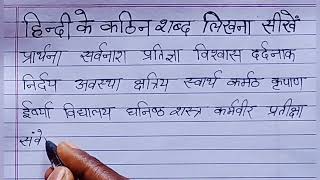 हिन्दी के कठिन शब्द लिखना सीखें
प्रार्थना सर्वनाश प्रतिज्ञा विश्वास दर्दनाक
निर्दय अवस्था क्षत्रिय स्वार्थ कर्मठ कृपाण
ईर्ष्या विद्यालय घनिष्ठ शस्त्र कर्मवीर प्रतीक्षा
संवे